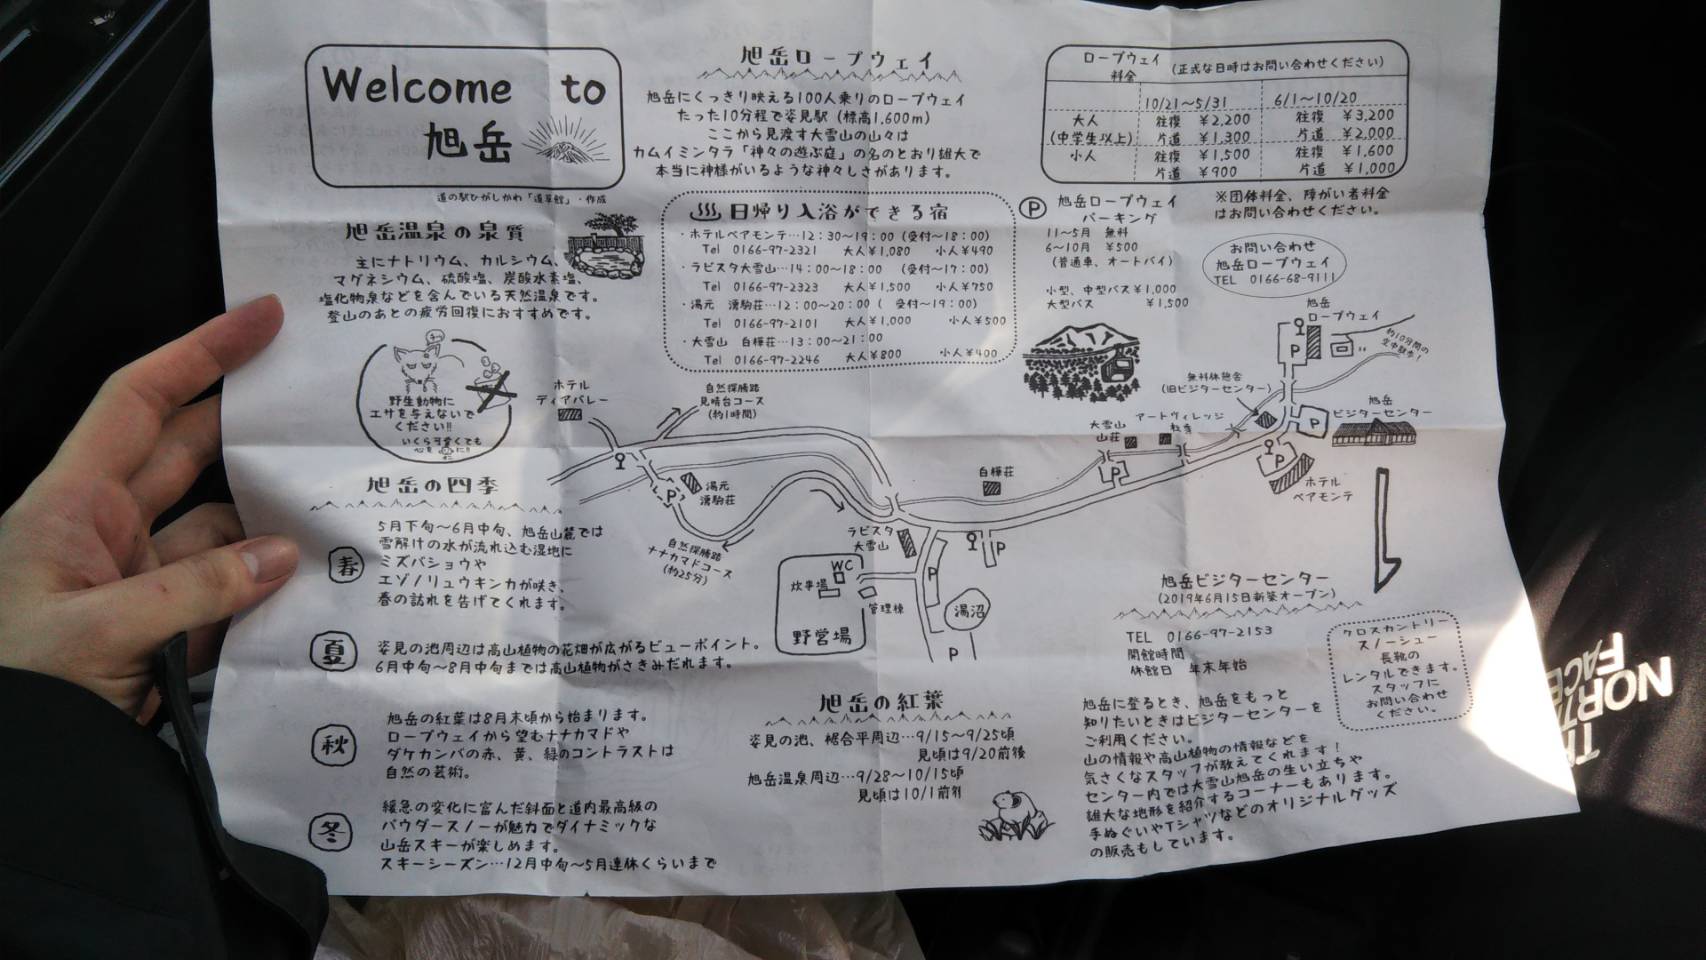 Welcome to
旭岳
道の駅ひがしかわ「道草館」・作成
旭岳ロープウェイ
旭岳にくっきり映える100人乗りのロープウェイ
たった10分程で姿見駅（標高1,600m）
ここから見渡す大雪山の山々は
カムイミンタラ「神々の遊ぶ庭」の名のとおり雄大で
本当に神様がいるような神々しさがあります。
ロープウェイ
料金
(正式な日時はお問い合わせください)
10/21～5/31 6/1～10/20
大人 往復 ¥2,200 往復 ¥3,200
(中学生以上) 片道 ¥1,300 片道 ¥2,000
小人 往復 ¥1,500 往復 ¥1,600
片道 ¥900 片道 ¥1,000
※団体料金、障がい者料金
はお問い合わせください。
旭岳温泉の泉質
主にナトリウム、カルシウム、
マグネシウム、硫酸塩、炭酸水素塩、
塩化物泉などを含んでいる天然温泉です。
登山のあとの疲労回復におすすめです。
日帰り入浴ができる宿
・ホテルベアモンテ…12：30～19：00（受付～18：00）
Tel 0166-97-2321 大人¥1,080 小人¥490
・ラビスタ大雪山…14：00～18：00 （受付～17：00）
Tel 0166-97-2323 大人¥1,500 小人¥750
・湯元 湧駒荘…12：00～20：00（ 受付～19：00）
Tel 0166-97-2101 大人¥1,000 小人¥500
・大雪山 白樺荘…13：00～21：00
Tel 0166-97-2246 大人¥800 小人¥400
P 旭岳ロープウェイ
パーキング
11～5月 無料
6～10月 ¥500
(普通車、オートバイ)
小型、中型バス¥1,000
大型バス ¥1,500
お問い合わせ
旭岳ロープウェイ
TEL 0166-68-9111
野生動物に
エサを与えないで
ください!!
いくら可愛くても
ホテル
ディアバレー
自然探勝路
見晴台コース
(約1時間)
P
湯元
湧駒荘
自然探勝路
ナナカマドコース
(約25分)
ラビスタ
大雪山
白樺荘
大雪山
山荘
P
アートヴィレッジ
杜季
無料休憩舎
(旧ビジターセンター)
旭岳
ロープウェイ
P
約10分間の
空中散歩！
旭岳
ビジターセンター
P
P
ホテル
ベアモンテ
P
P
P
湯沼
WC
炊事場
管理棟
野営場
旭岳の四季
春
5月下旬～6月中旬、旭岳山麓では
雪解けの水が流れ込む湿地に
ミズバショウや
エゾノリュウキンカが咲き、
春の訪れを告げてくれます。
夏
姿見の池周辺は高山植物の花畑が広がるビューポイント。
6月中旬～8月中旬までは高山植物がさきみだれます。
秋
旭岳の紅葉は8月末頃から始まります。
ロープウェイから望むナナカマドや
ダケカンバの赤、黄、緑のコントラストは
自然の芸術。
冬
緩急の変化に富んだ斜面と道内最高級の
パウダースノーが魅力でダイナミックな
山岳スキーが楽しめます。
スキーシーズン…12月中旬～5月連休くらいまで
旭岳の紅葉
姿見の池、裾合平周辺…9/15～9/25頃
見頃は9/20前後
旭岳温泉周辺…9/28～10/15頃
見頃は10/1前後
旭岳ビジターセンター
(2019年6月15日新築オープン)
TEL 0166-97-2153
開館時間
休館日 年末年始
クロスカントリー
スノーシュー
長靴の
レンタルできます。
スタッフに
お問い合わせ
ください。
旭岳に登るとき、旭岳をもっと
知りたいときはビジターセンターを
ご利用ください。
山の情報や高山植物の情報などを
気さくなスタッフが教えてくれます！
センター内では大雪山旭岳の生い立ちや
雄大な地形を紹介するコーナーもあります。
手ぬぐいやTシャツなどのオリジナルグッズ
の販売もしています。
THE
NORTH
FACE